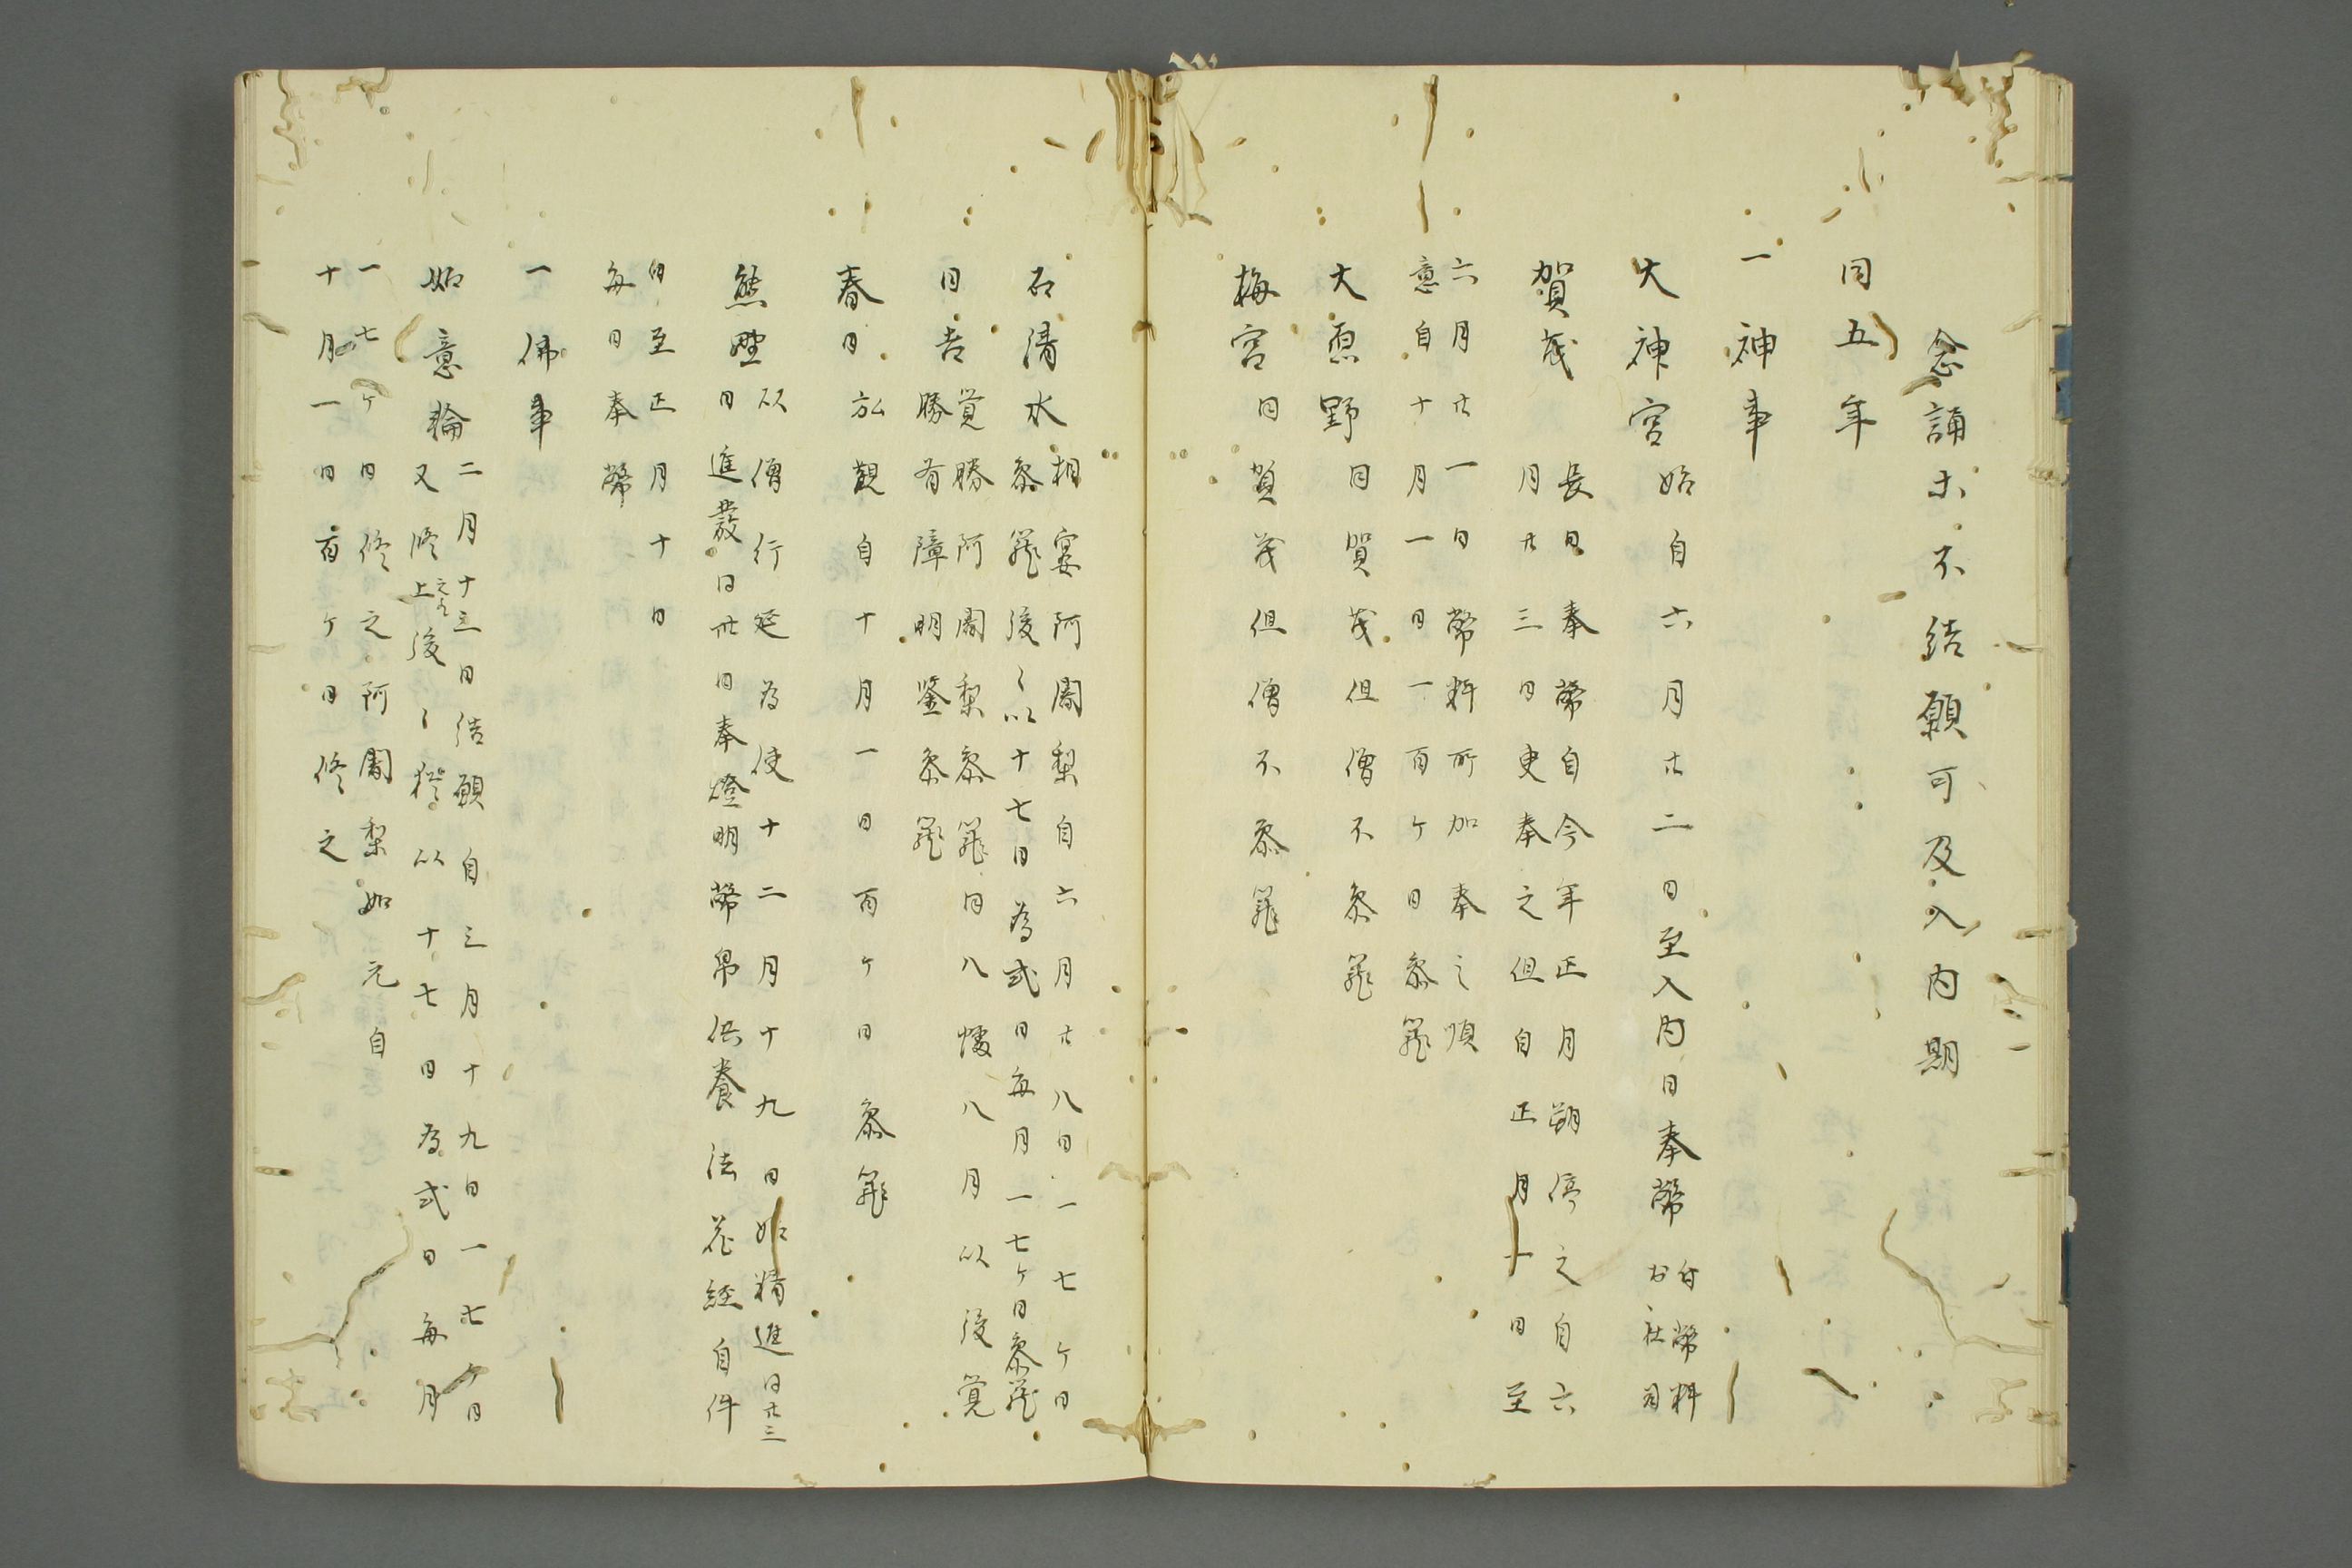 念誦等不結願可及入内期
同五年
一神事
大神宮始自六月廿二日至入内日奉幣付幣料
於社司
賀茂長日奉幣自今年正月朔停之自六
月廿三日更奉之但自正月十日至
六月廿一日幣料所加奉之順
意自十月一日一百ケ日参篭
大原野同賀茂但僧不参篭
梅宮同賀茂但僧不参篭
石清水相宴阿闍梨自六月廿八日一七ケ日
参篭後々以十七日為式日毎月一七ケ日参篭
日吉覚勝阿闍梨参篭同八幡八月以後覚
勝有障明鑒参篭
春日弘観自十月一日百ケ日参篭
熊野以僧行延為使十二月十九日始精進同廿三
日進發同卅日奉燈明幣帛供養法花経自件
日至正月十日
毎日奉幣
一佛事
如意輪二月十三日結願自三月十九日一七ケ日
又修之上後々以十七日為式日毎月
一七ケ日修之阿闍梨如元自
十月一日百ケ日修之